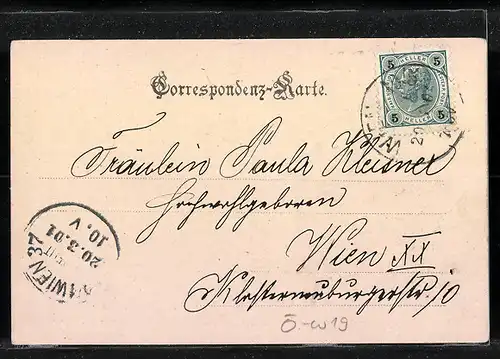 Correspondenz-Karte.
5 HELLER 5
5 HELLER 5
Fräulein Paula Kleisner
Hochwohlgeboren
Wien XX
Klosterneuburgerstr. 10
WIEN 37
20.3.01
10.V
Ö-W19